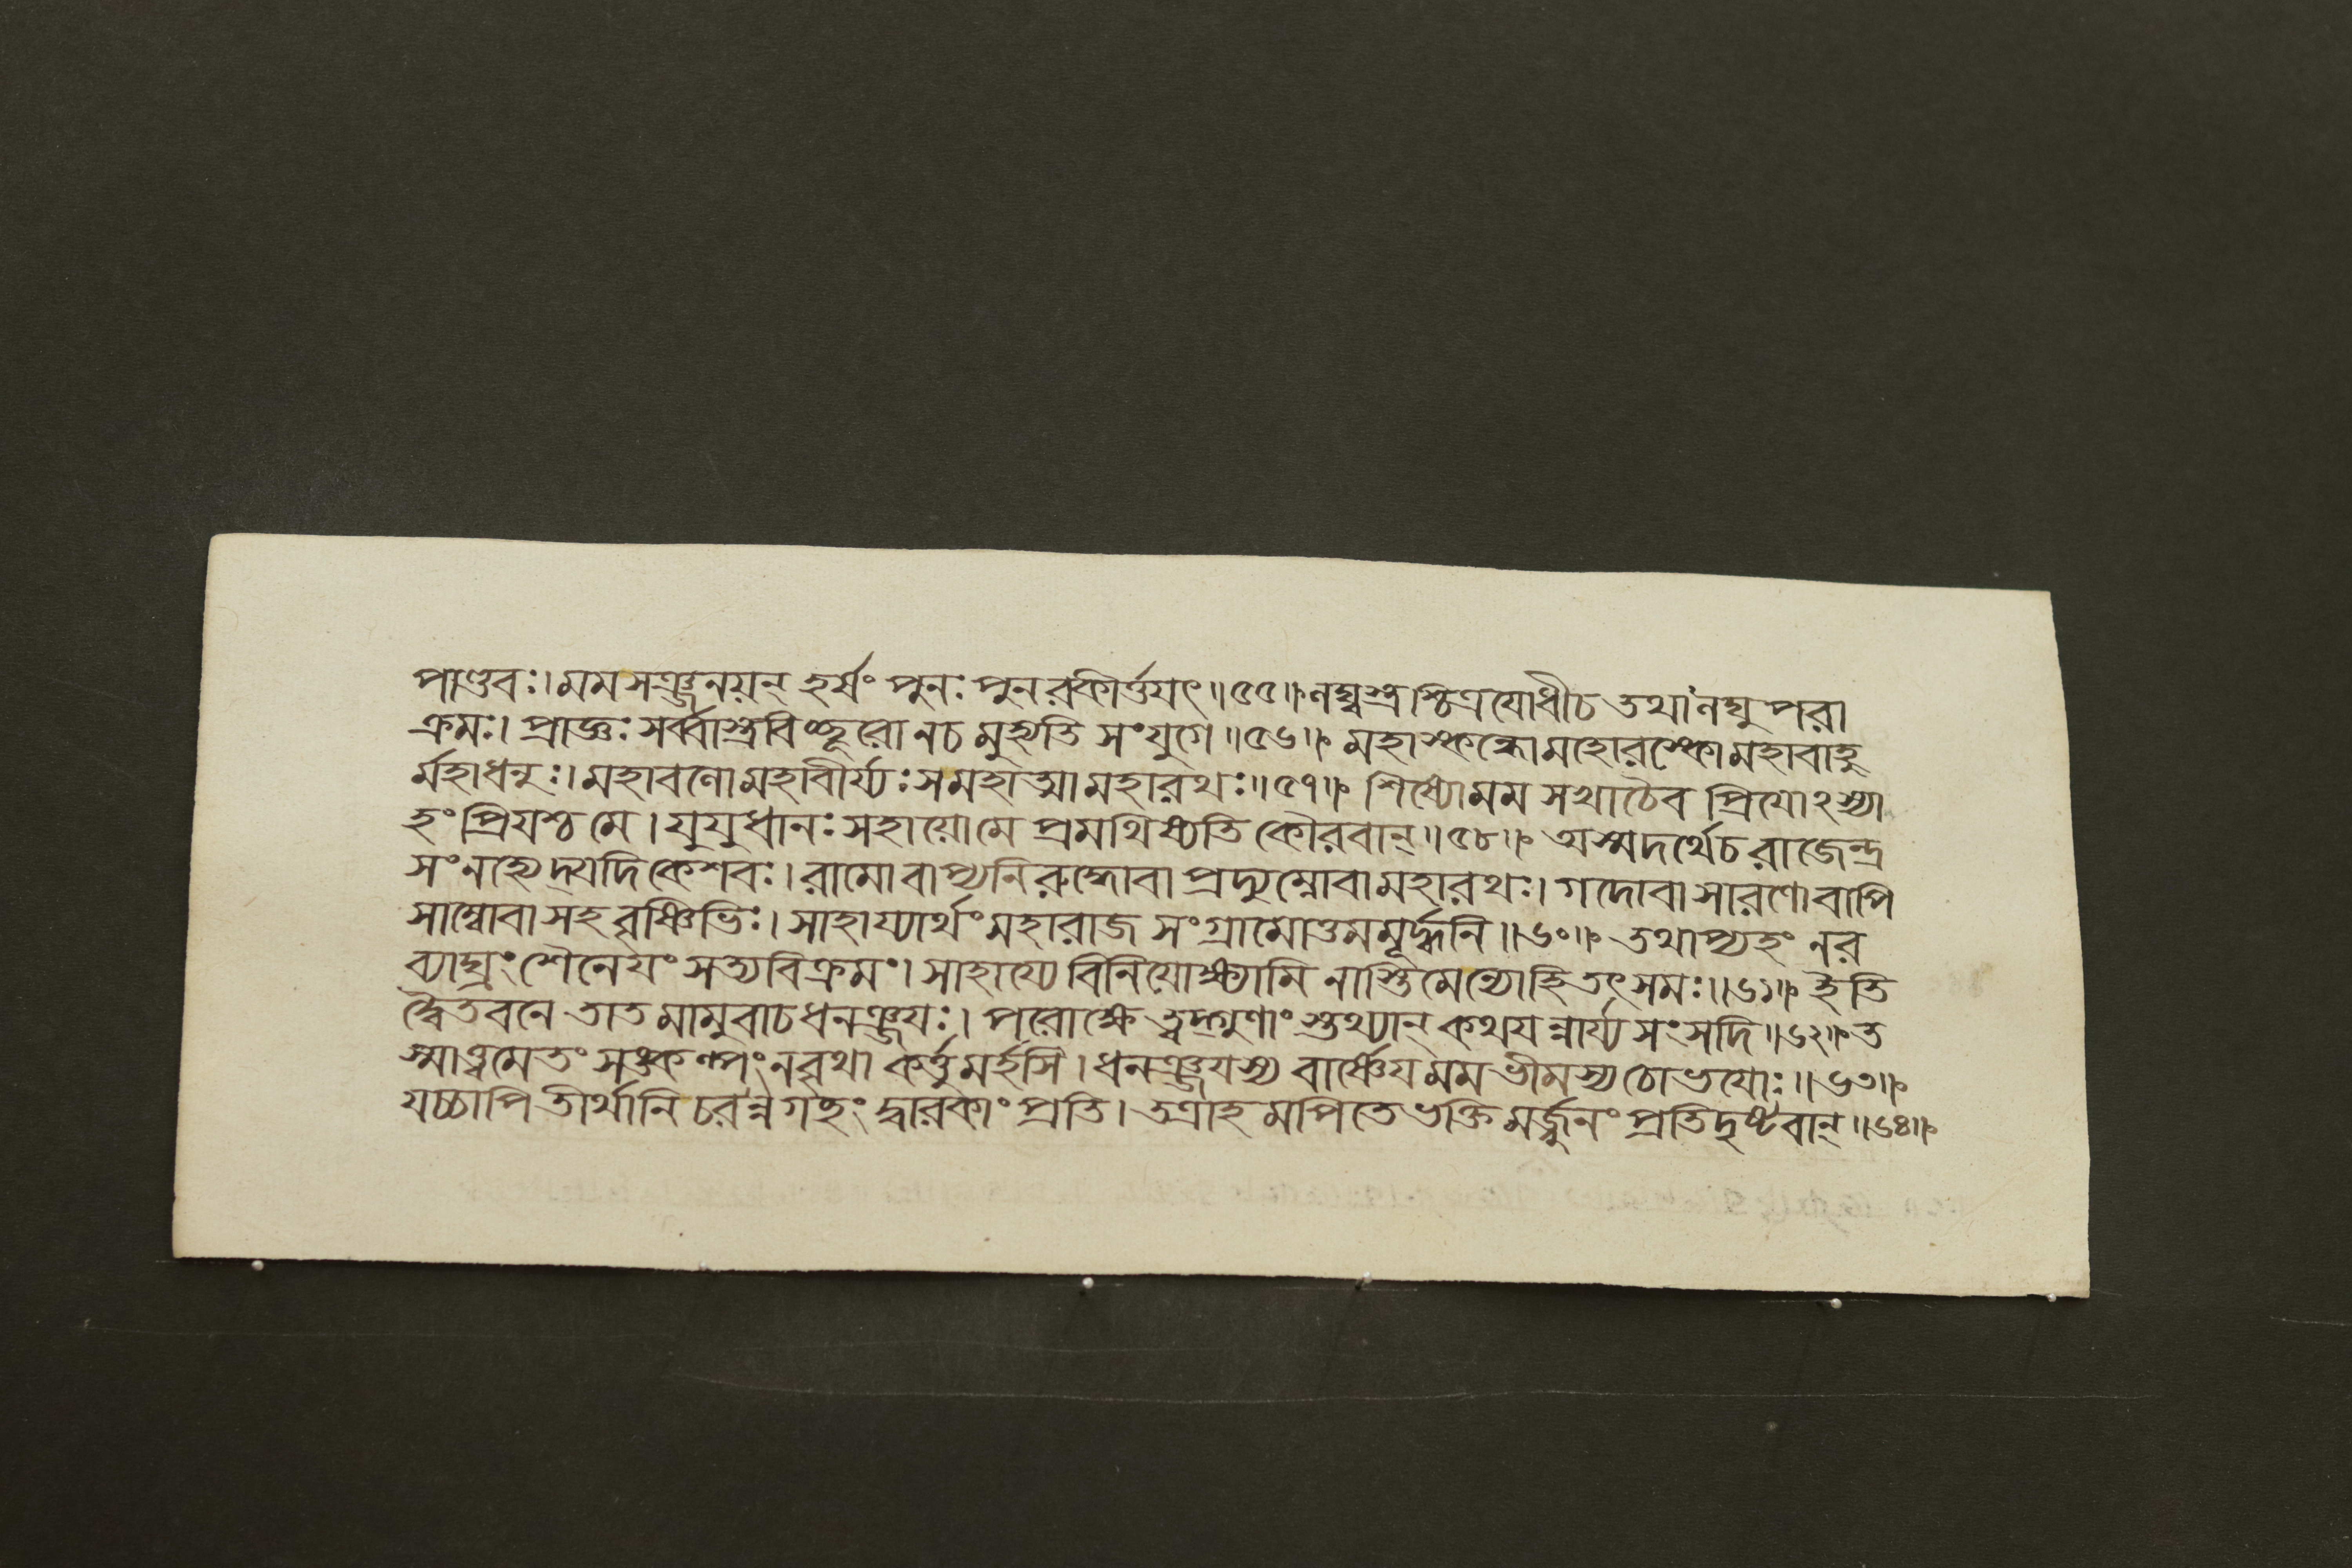 পাণ্ডবঃ। মম সঞ্জনয়ন্ হর্ষং পুনঃ পুনরকীর্ত্তয়ৎ॥৫৫॥ লঘ্বস্ত্রশ্চিত্রযোধীচ তথা লঘু পরা
ক্রমঃ। প্রাজ্ঞঃ সর্ব্বাস্ত্রবিচ্ছূরো নচ মুহ্যতি সংযুগে॥৫৬॥ মহাস্কন্ধোমহোরস্কোমহাবাহু
র্মহাধনুঃ। মহাবলোমহাবীর্য্যঃ সমহাত্মামহারথঃ॥৫৭॥ শিষ্যোমম সখাচৈব প্রিয়োঽস্যা
হং প্রিয়শ্চ মে। যুযুধানঃ সহায়োমে প্রমথিষ্যতি কৌরবান্॥৫৮॥ অস্মদর্থেচ রাজেন্দ্র
সংনহ্যেদ্যদি কেশবঃ। রামোবাপ্যনিরুদ্ধোবা প্রদ্যুম্নোবামহারথঃ। গদোবা সারণোবাপি
সাম্বোবা সহ বৃষ্ণিভিঃ। সাহায্যার্থং মহারাজ সংগ্রামোত্তমমূর্দ্ধনি॥৬০॥ তথাপ্যহং নর
ব্যাঘ্রং শৈনেয়ং সত্যবিক্রমং। সাহায্যে বিনিয়োক্ষ্যামি নাস্তিমেন্যোহি তৎসমঃ॥৬১॥ ইতি
দ্বৈতবনে তাত মামুবাচ ধনঞ্জয়ঃ। পরোক্ষে ত্বদ্গুণাংস্তথ্যান্ কথয়ন্নার্য্য সংসদি॥৬২॥ ত
স্মাত্ত্বমেতং সঙ্কল্পং নবৃথা কর্ত্তুমর্হসি। ধনঞ্জয়স্য বার্ষ্ণেয় মম ভীমস্য চোভয়োঃ॥৬৩॥
যচ্চাপি তীর্থানি চরন্নগচ্ছং দ্বারকাং প্রতি। তত্রাহমপিতে ভক্তিমর্জ্জুনং প্রতিদৃষ্টবান্॥৬৪॥